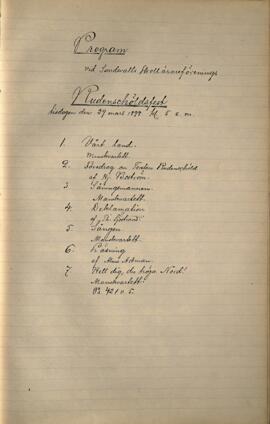 Program
vid Sandvalls Skollärareförenings
Rudenschöldsfest
lördagen den 29 mars 1899 kl. 5 e. m.
1. Vårt land.
Manskvartett.
2. Föredrag om Torsten Rudenschöld
af Hj. Boström.
3. Såningsmannen.
Manskvartett.
4. Deklamation
af
5. Sången.
Manskvartett.
6. Läsning
af Alma
7. Hell dig, du höga Nord!
Manskvartett.
Ps. 421 v. 5.